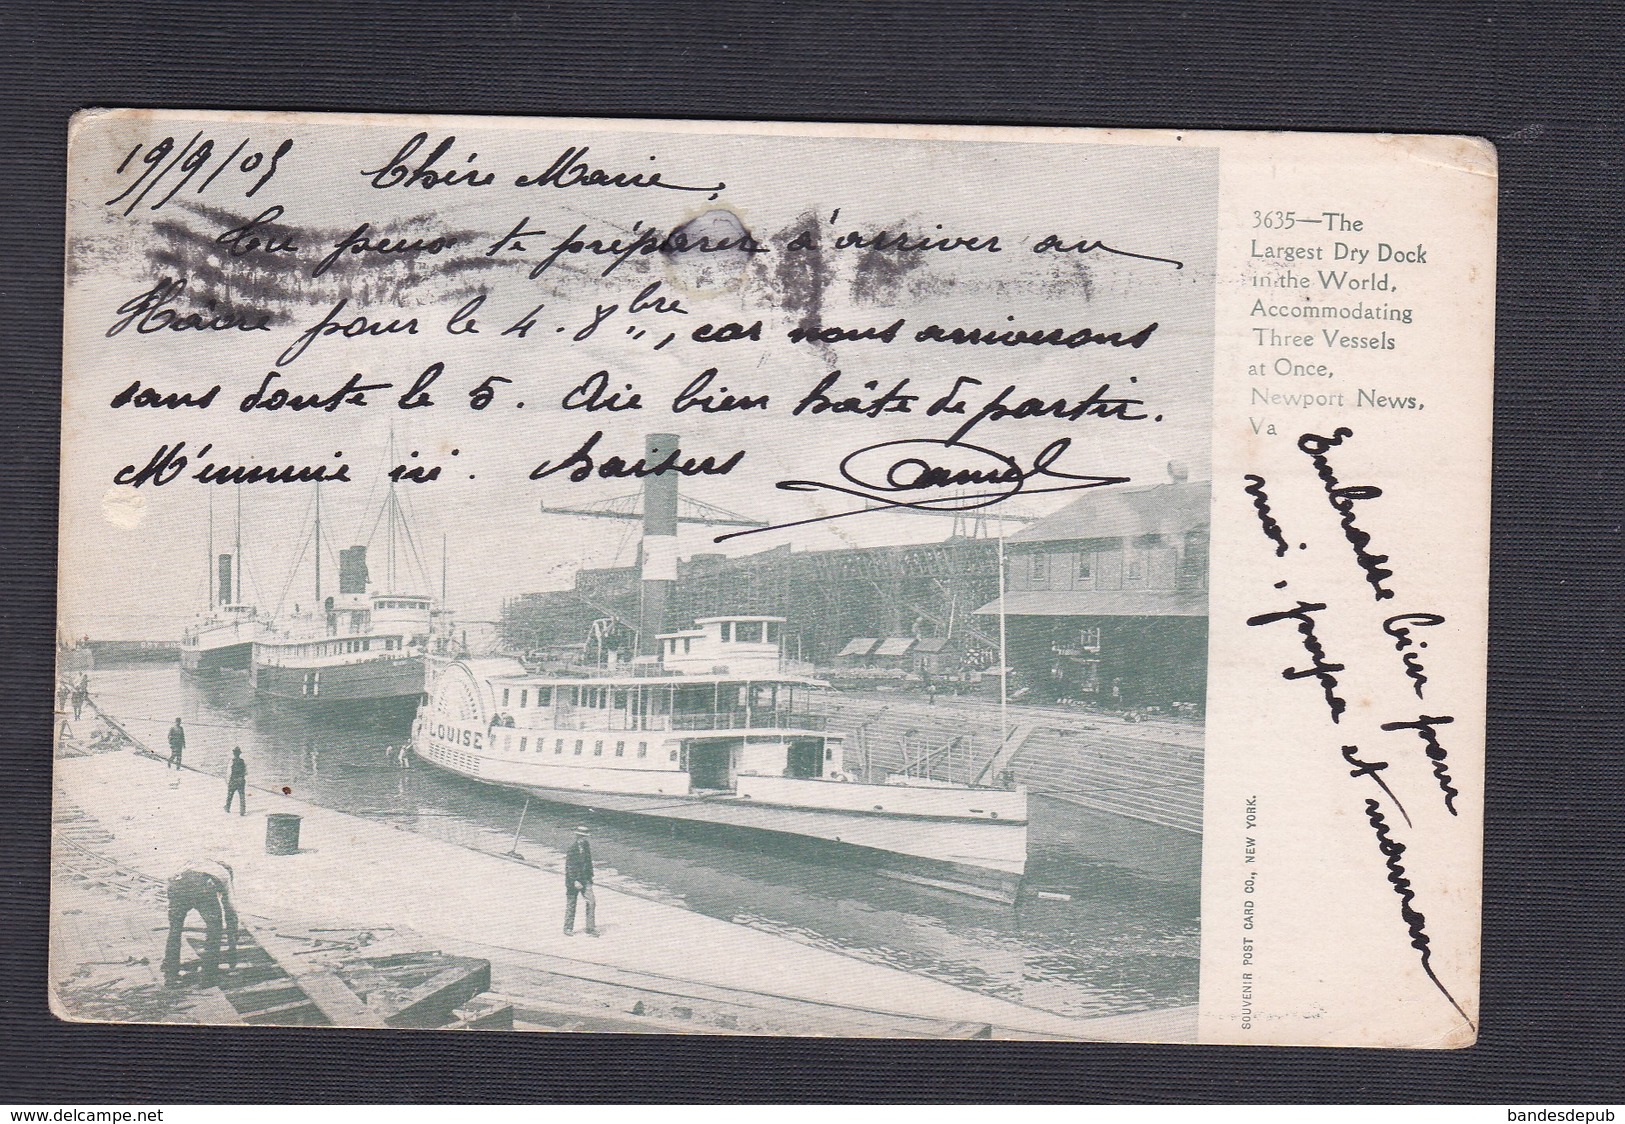 19/9/05 Chère Marie,
Tu peux te préparer à arriver au
Hâvre pour le 4. 8bre, car nous arriverons
sans doute le 5. Aie bien hâte de partir.
M'ennuie ici. baisers Daniel
Embrasse bien pour
moi, papa et maman
3635—The
Largest Dry Dock
in the World,
Accommodating
Three Vessels
at Once,
Newport News,
Va
LOUISE
SOUVENIR POST CARD CO., NEW YORK.
www.delcampe.net
bandesdepub